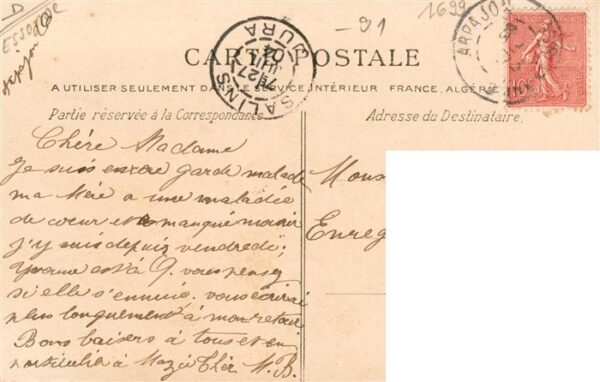 D
ESSONNE
Arpajon
- 91
1699
CARTE POSTALE
A UTILISER SEULEMENT DANS LE SERVICE INTÉRIEUR FRANCE, ALGÉRIE
SALINS
JURA
ARPAJON
RÉPUBLIQUE FRANÇAISE
10c
Partie réservée à la Correspondance
Adresse du Destinataire.
Chère Madame
Je suis encore garde malade
ma Mère a une maladie
de coeur et a manqué mourir
j'y suis depuis vendredi;
Yvonne est à 9. vous pensez
si elle s'ennuie. vous écrirai
plus longuement à mon retour
Bons baisers à tous et en
particulier à M. B.
Mons
Enreg